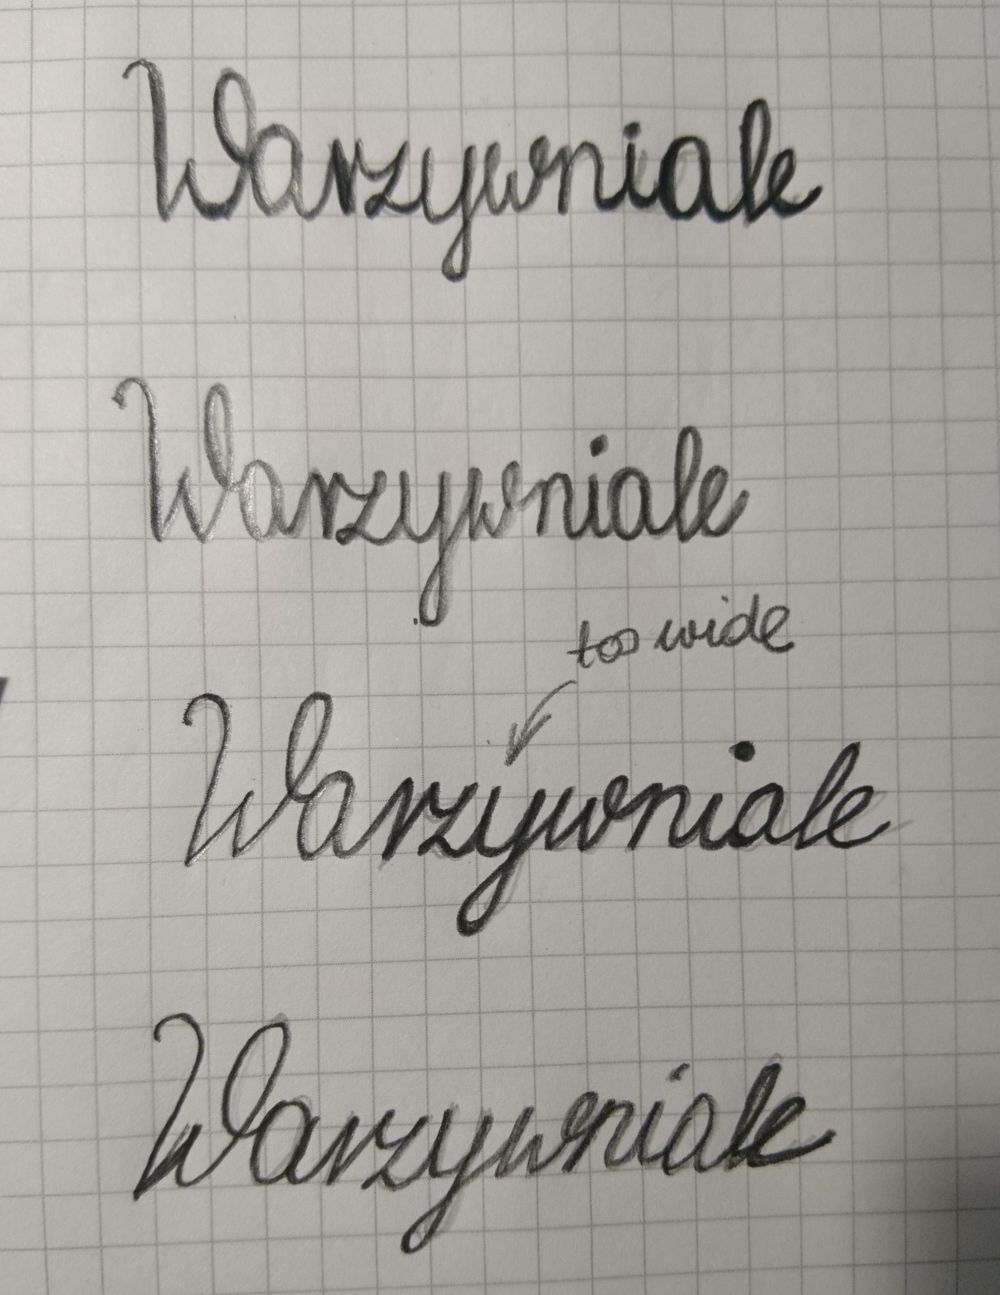 Warzywniak
Warzywniak
too wide
Warzywniak
Warzywniak